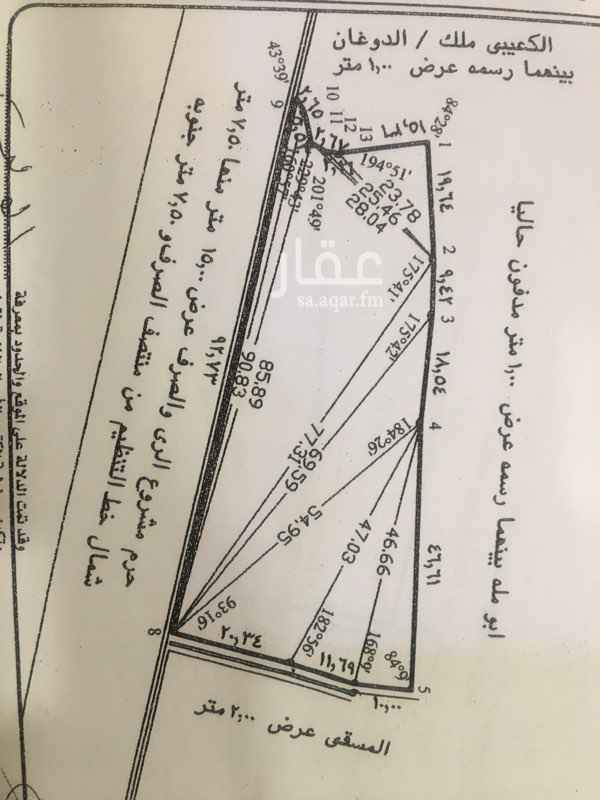 الكعيبى ملك / الدوغان
بينهما رسمه عرض ١,٠٠ متر
43°39'
9
٢,٦٥
10
11
12
13
١٨,٥١
84°28'
1
194°51'
23.78
25.46
28.04
201°49'
١٩,٦٤
2
٩,٤٢
3
١٨,٥٤
4
٤٦,٦١
5
175°41'
175°42'
184°26'
عقار
sa.aqar.fm
ابو مله بينهما رسمه عرض ١,٠٠ متر مدفون حاليا
85.89
90.83
٩٢,٧٣
77.31
69.59
54.95
47.03
46.66
93°16'
182°56'
168°9'
84°9'
8
٢٠,٣٤
١١,٦٩
١٠,٠٠
المسقى عرض ٢,٠٠ متر
حرم مشروع الرى والصرف عرض ١٥,٠٠ متر منها ٧,٥٠ متر
شمال خط التنظيم من منتصف الصرف و ٧,٥٠ متر جنوبه
وقد تمت الدلالة على الموقع والحدود بمعرفة